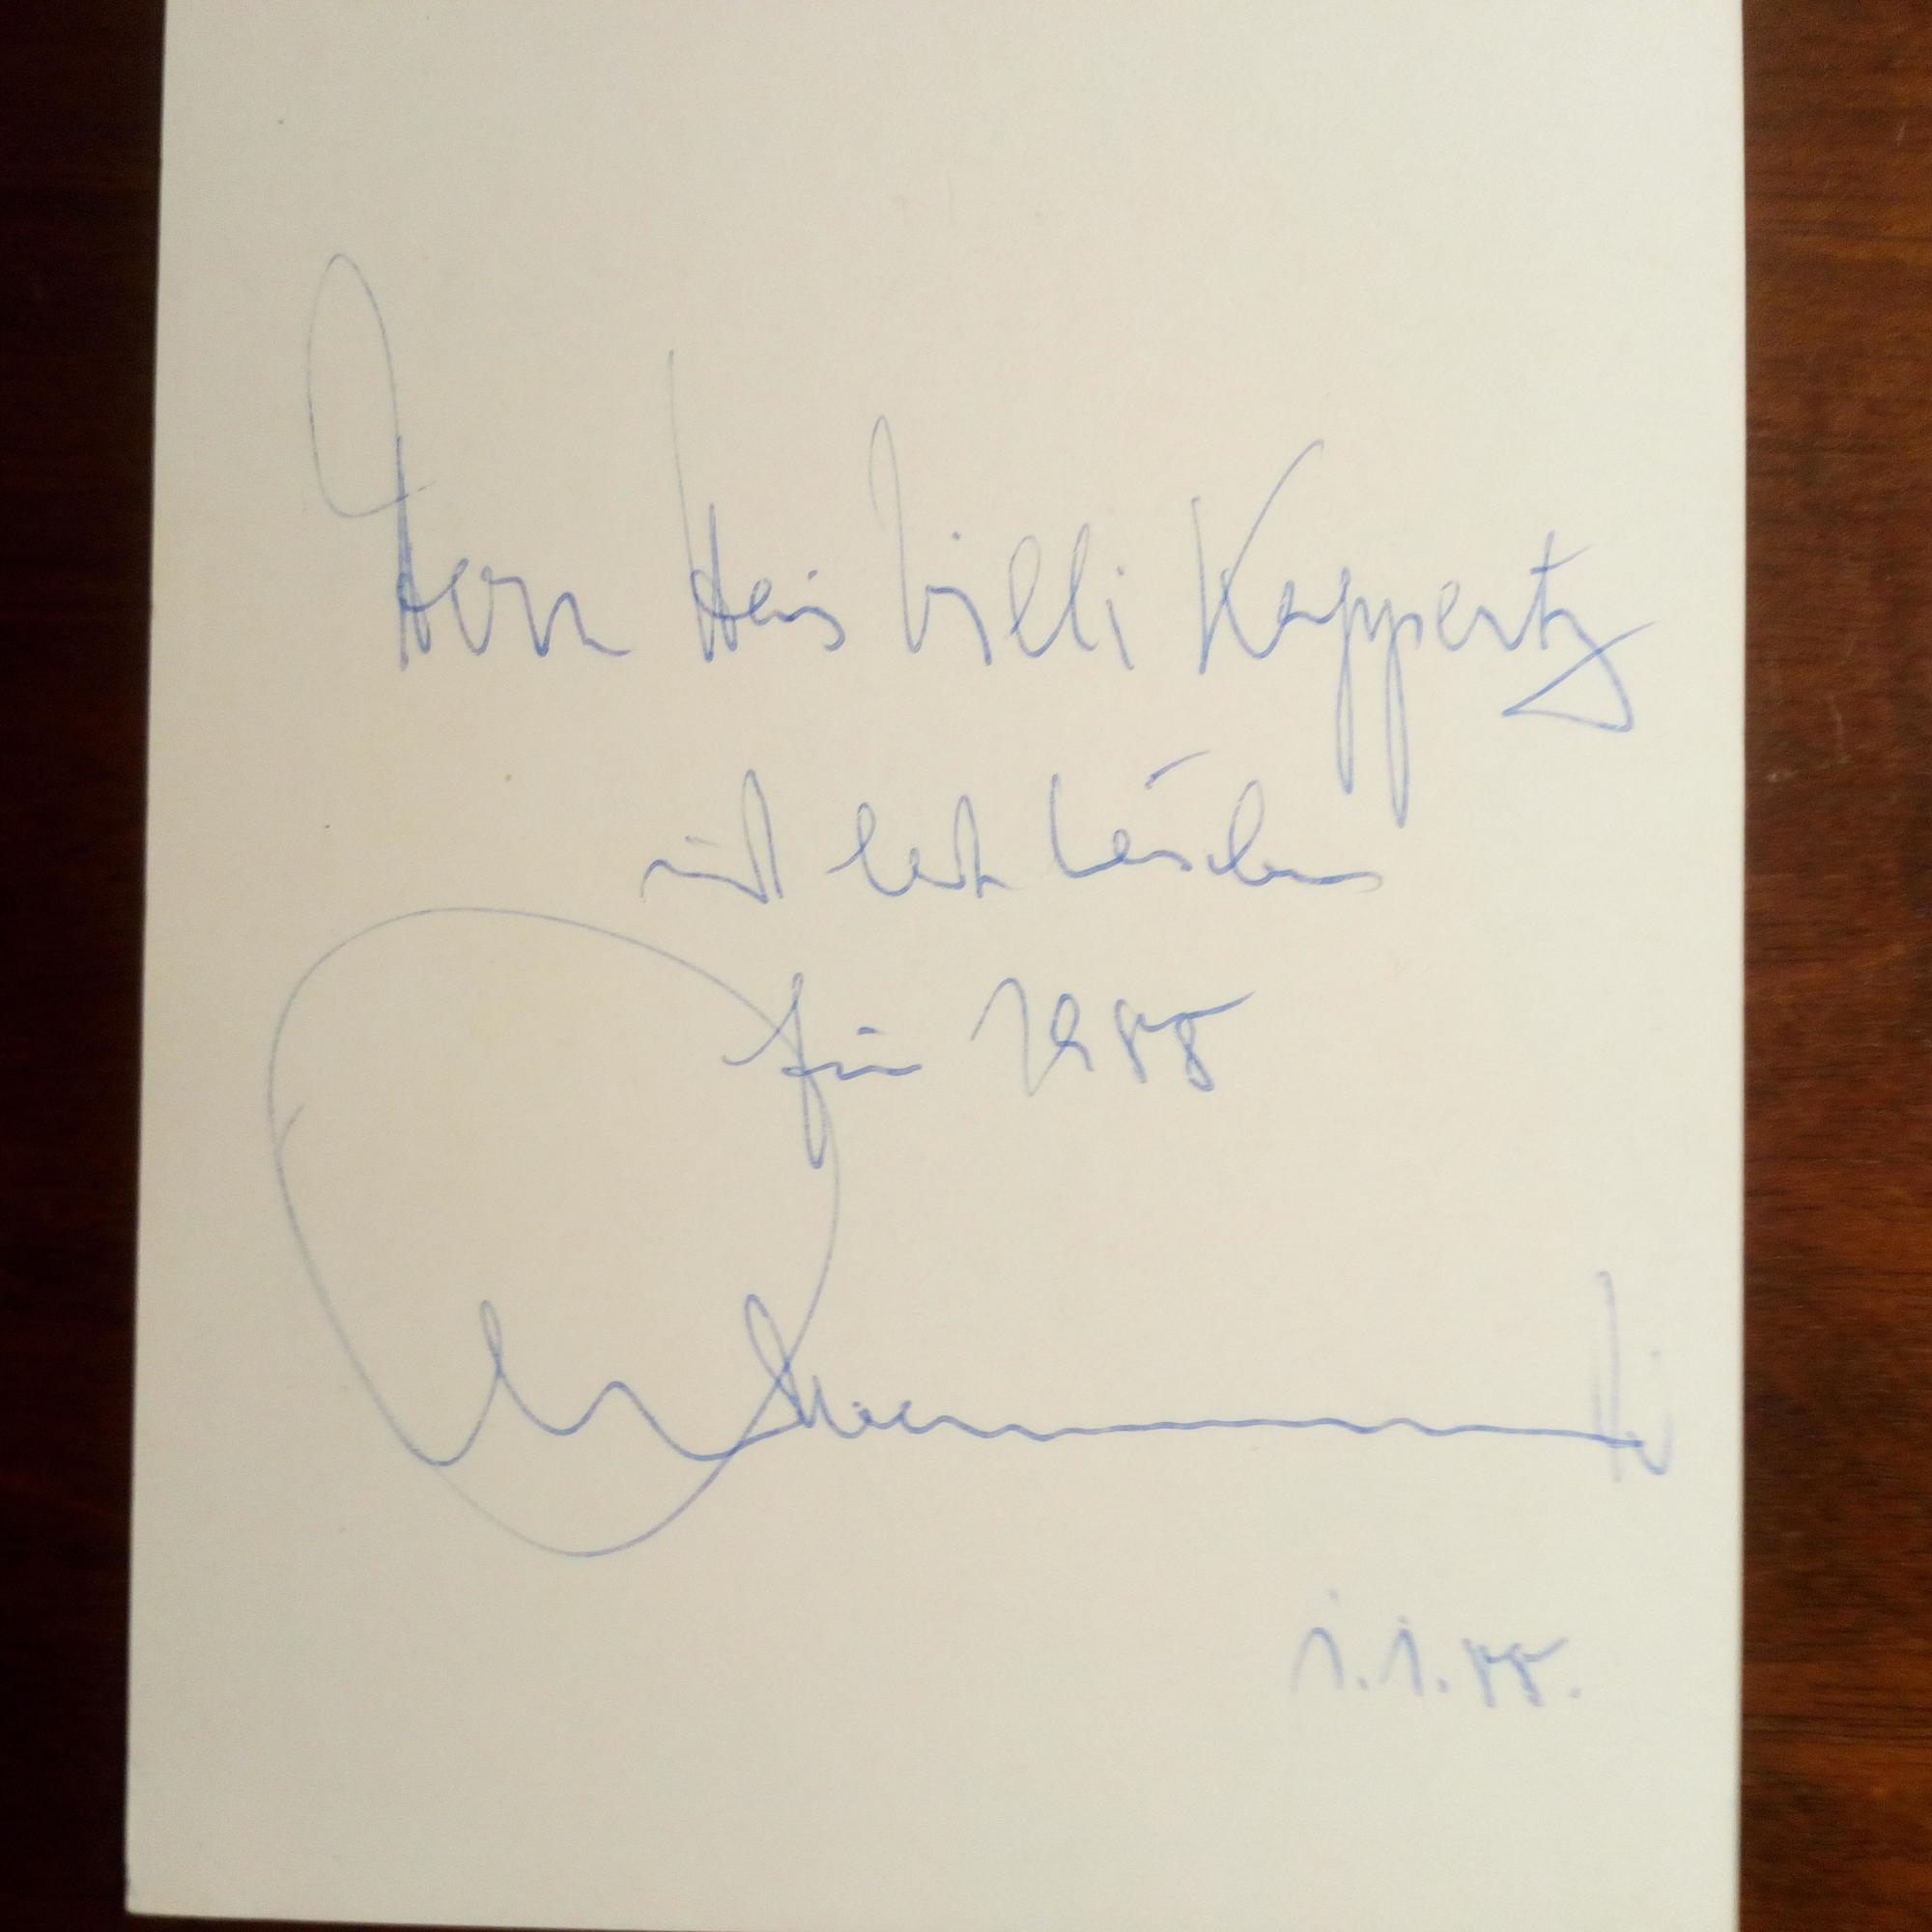 Herrn Heinz Willi Kappertz
mit besten Wünschen
für 1988
1.1.88.